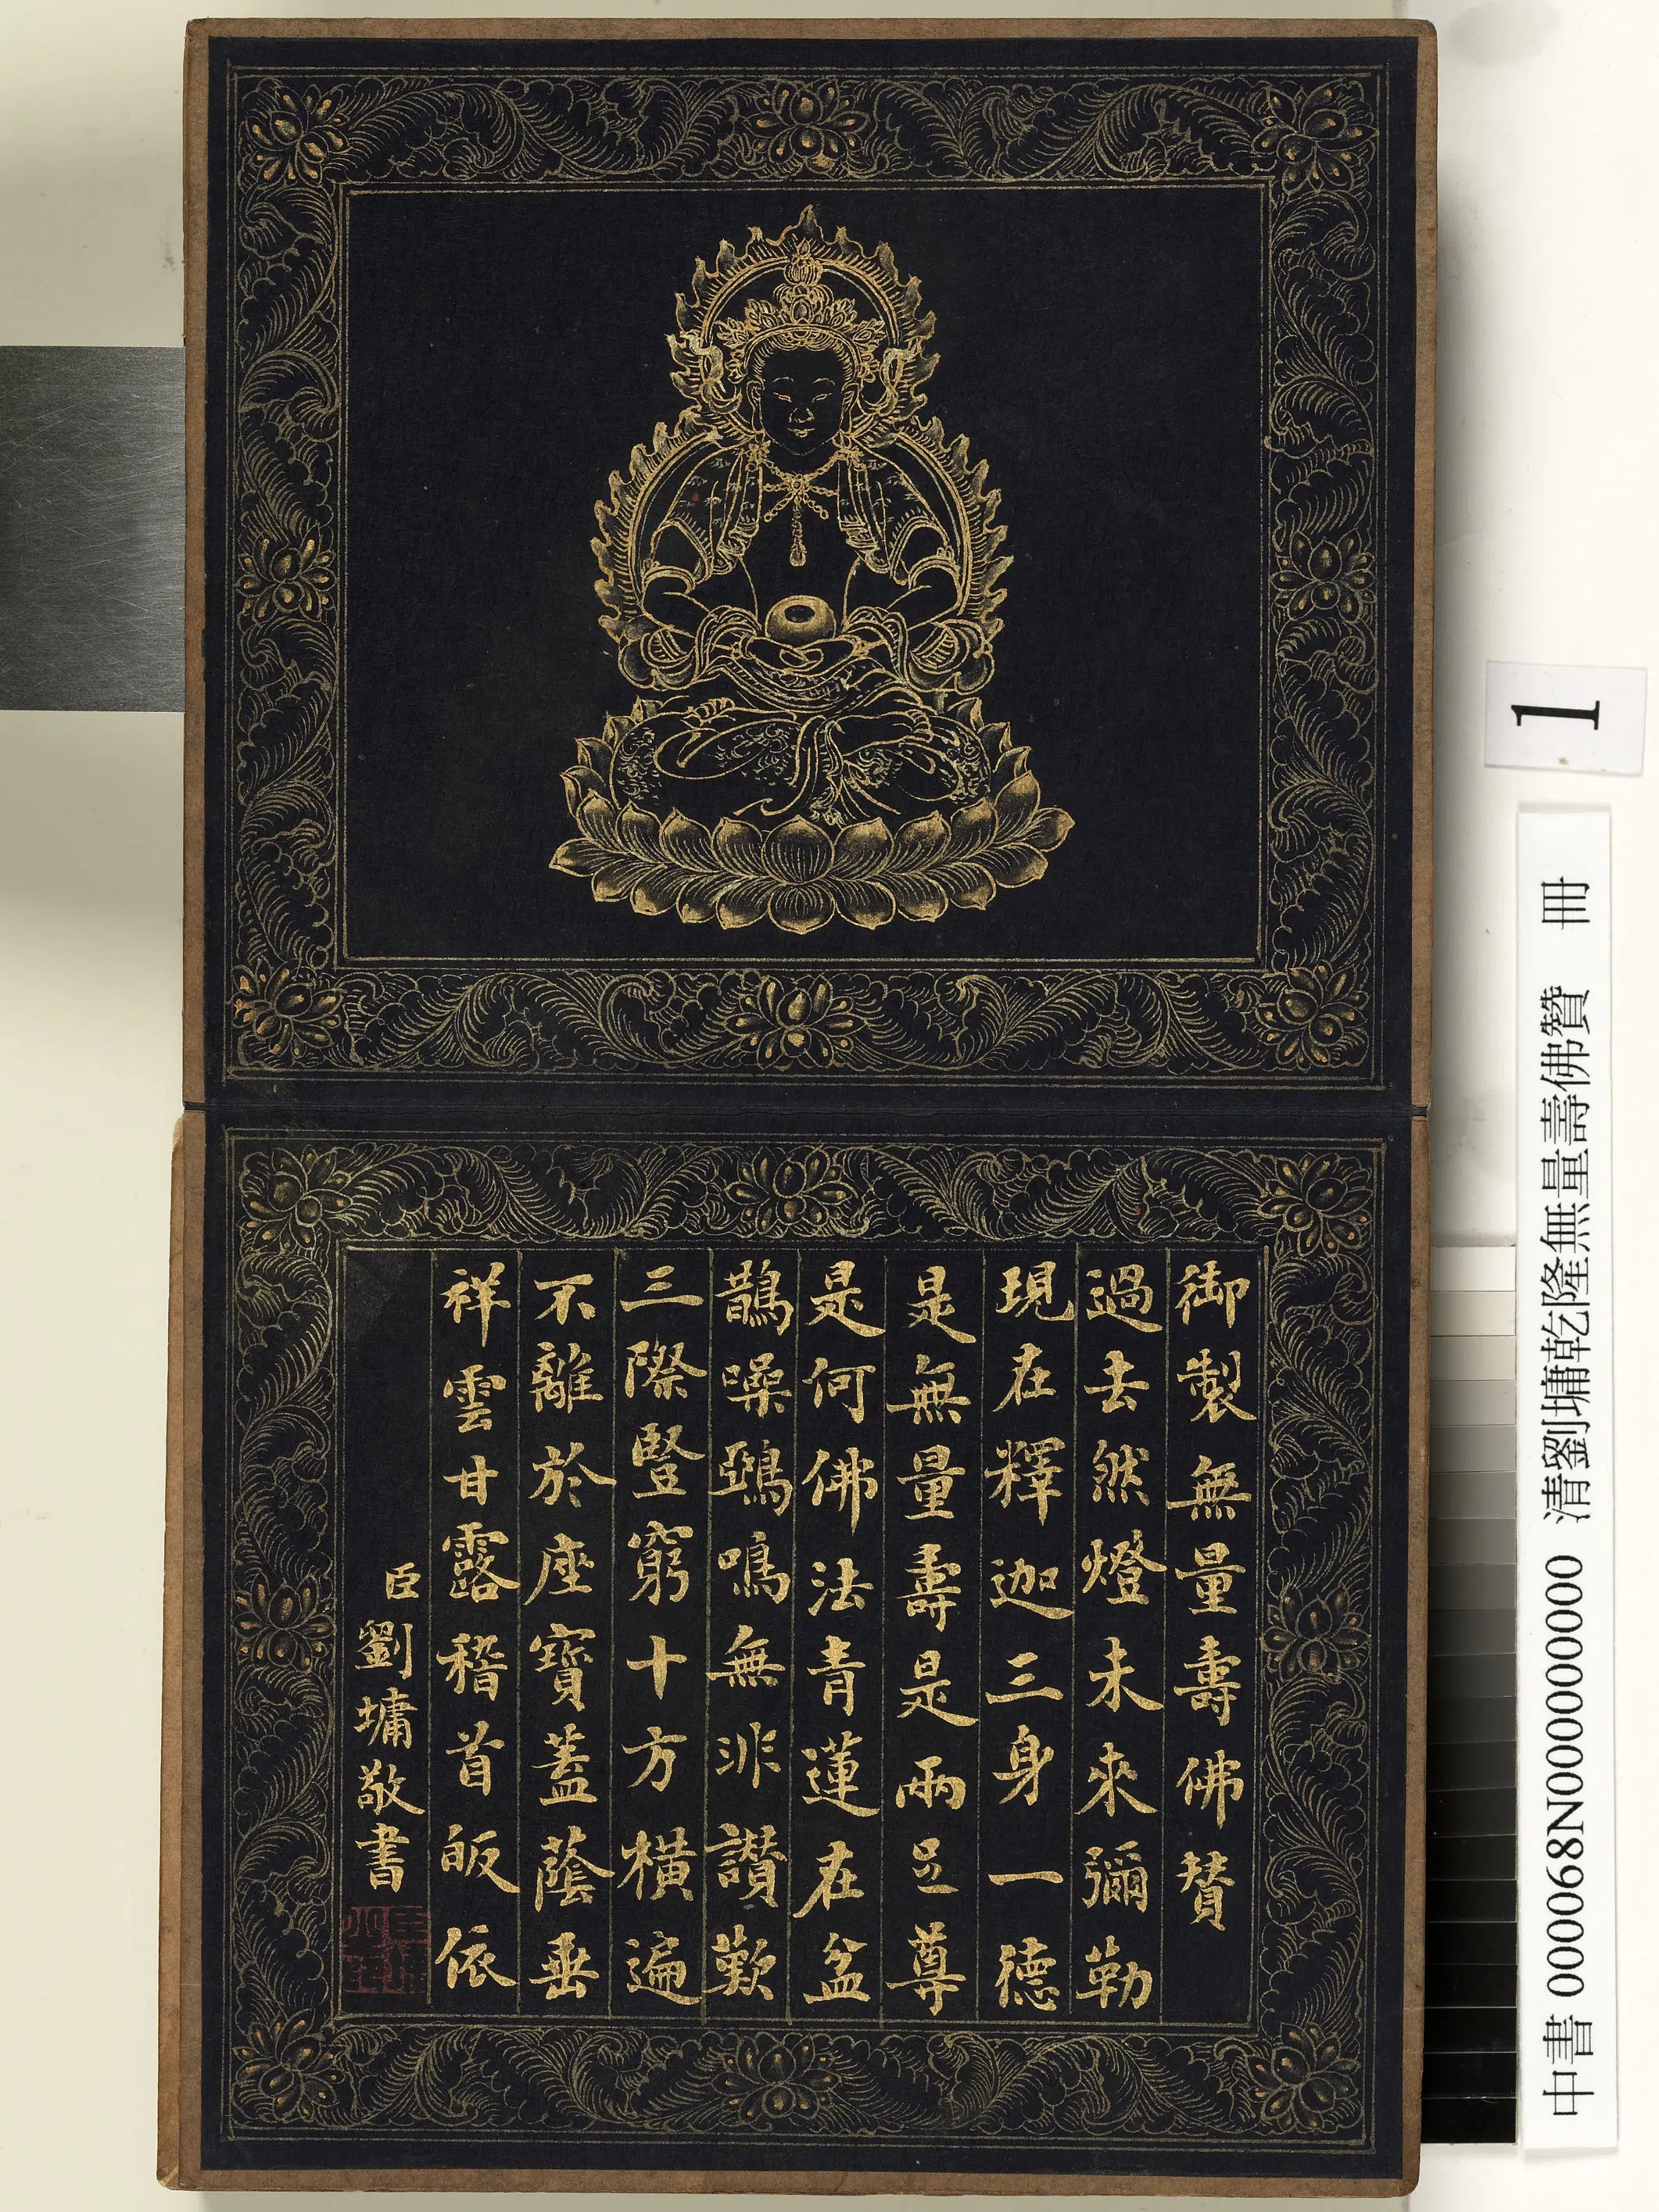 御製無量壽佛贊
過去然燈未來彌勒
現在釋迦三身一德
是無量壽是兩足尊
是何佛法青蓮在盆
鵲噪鵶鳴無非讃歎
三際豎窮十方橫遍
不離於座寶蓋蔭垂
祥雲甘露稽首皈依
臣劉墉敬書
1
中書 000068N000000000 清劉墉乾隆無量壽佛贊 冊